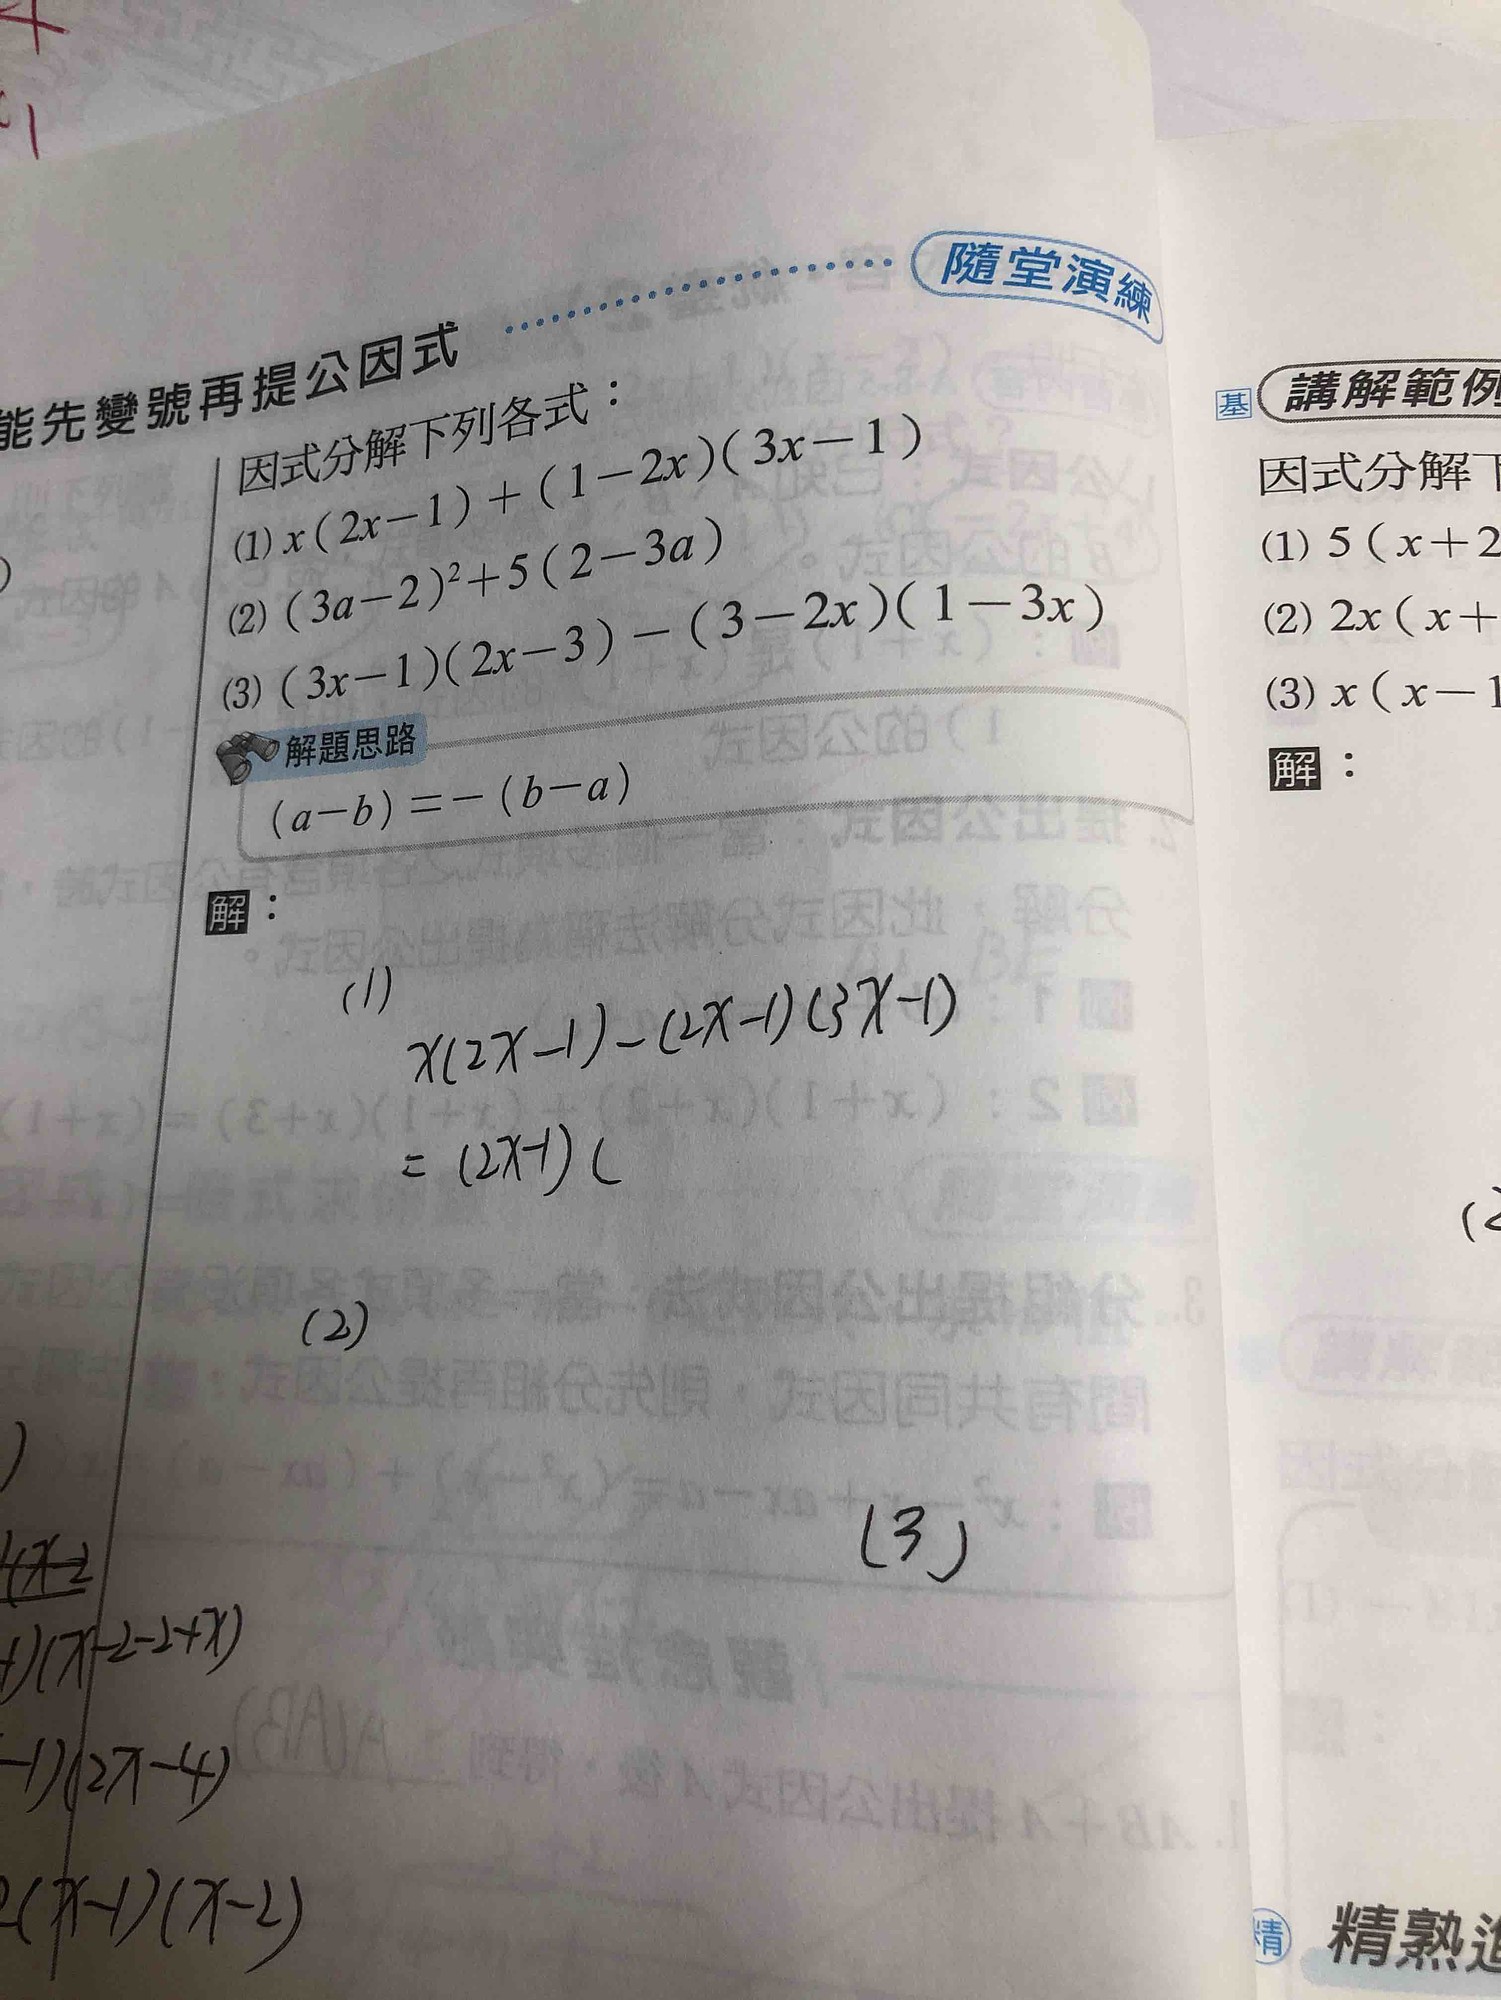 隨堂演練
能先變號再提公因式
因式分解下列各式：
(1) x(2x−1)+(1−2x)(3x−1)
(2) (3a−2)²+5(2−3a)
(3) (3x−1)(2x−3)−(3−2x)(1−3x)
解題思路
(a−b)=−(b−a)
解：
(1)
x(2x−1)−(2x−1)(3x−1)
= (2x−1)(
(2)
(3)
)(x−2−2+x)
−1)(2x−4)
2(x−1)(x−2)
基 講解範例
因式分解下
(1) 5(x+2
(2) 2x(x+
(3) x(x−1
解：
(2
精 精熟進